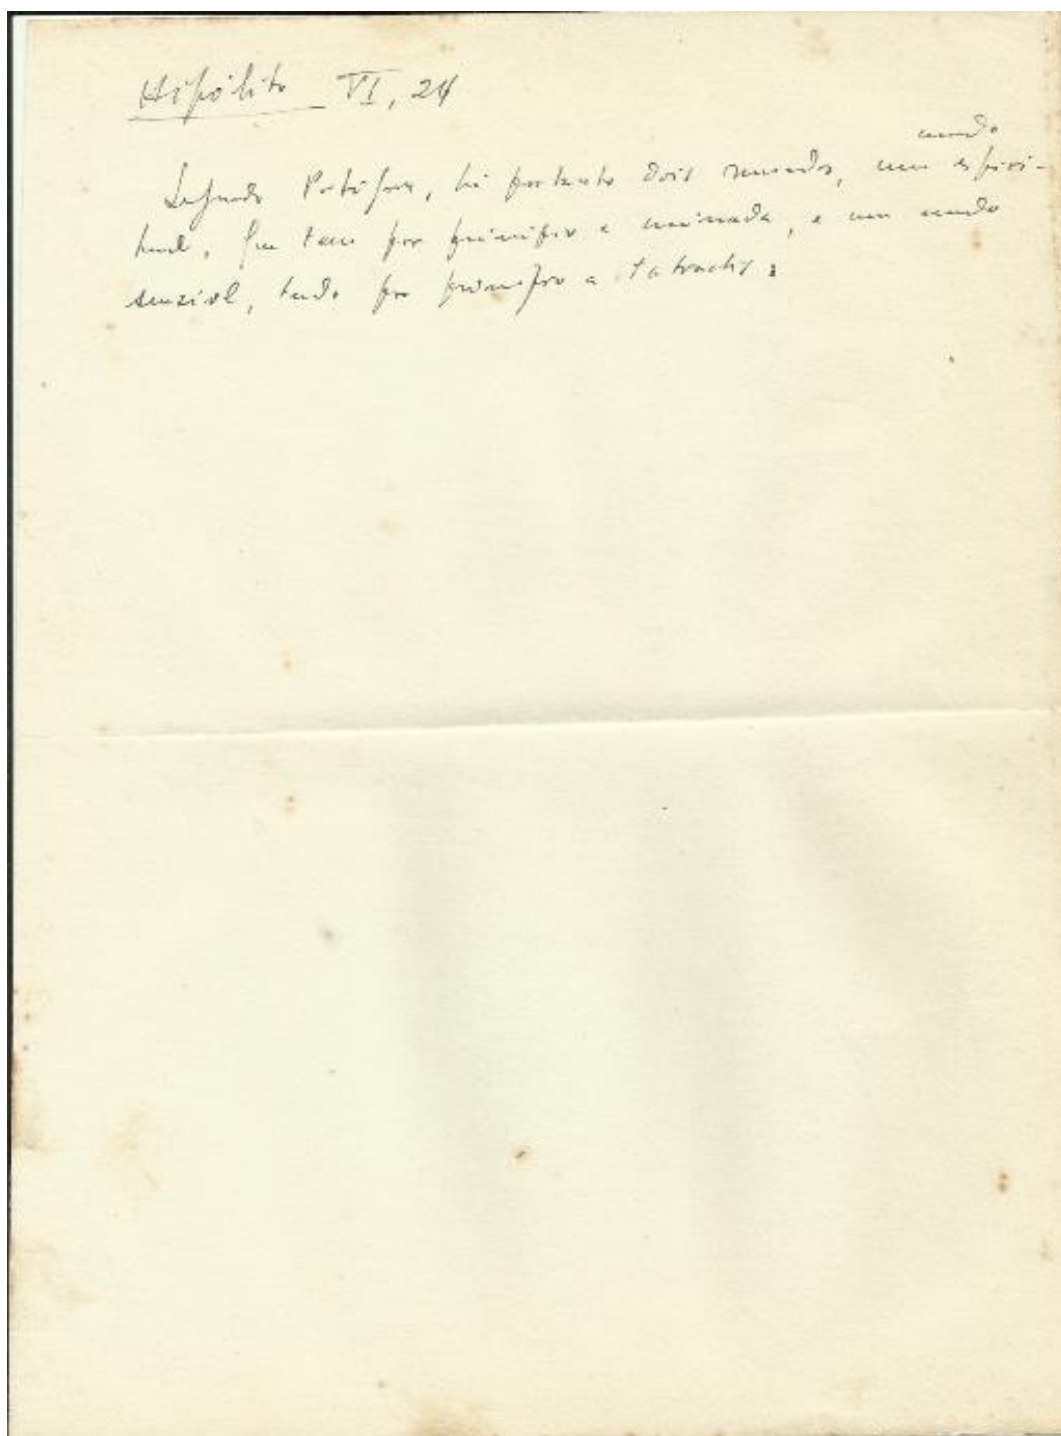 Hipólito VI, 24
mundo
Segundo Pitágoras, há portanto dois mundos, um espiri-
tual, que tem por princípio a mónada, e um mundo
sensível, tendo por princípio a tetractis: